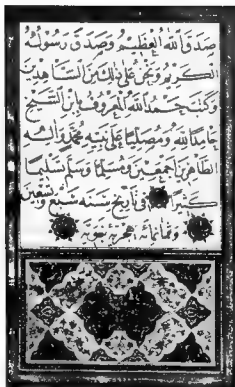 صدق الله العظيم وصدق رسوله
الكريم ونحن على ذلك من الشاهدين
وكتبه حمد الله المعروف بابن الشيخ
حامدا لله ومصليا على نبيه محمد وآله
الطاهرين اجمعين ومسلما وسلم تسليما
كثيرا في تاريخ سنه سبع وتسعين
وثمانمائه هجريه نبويه